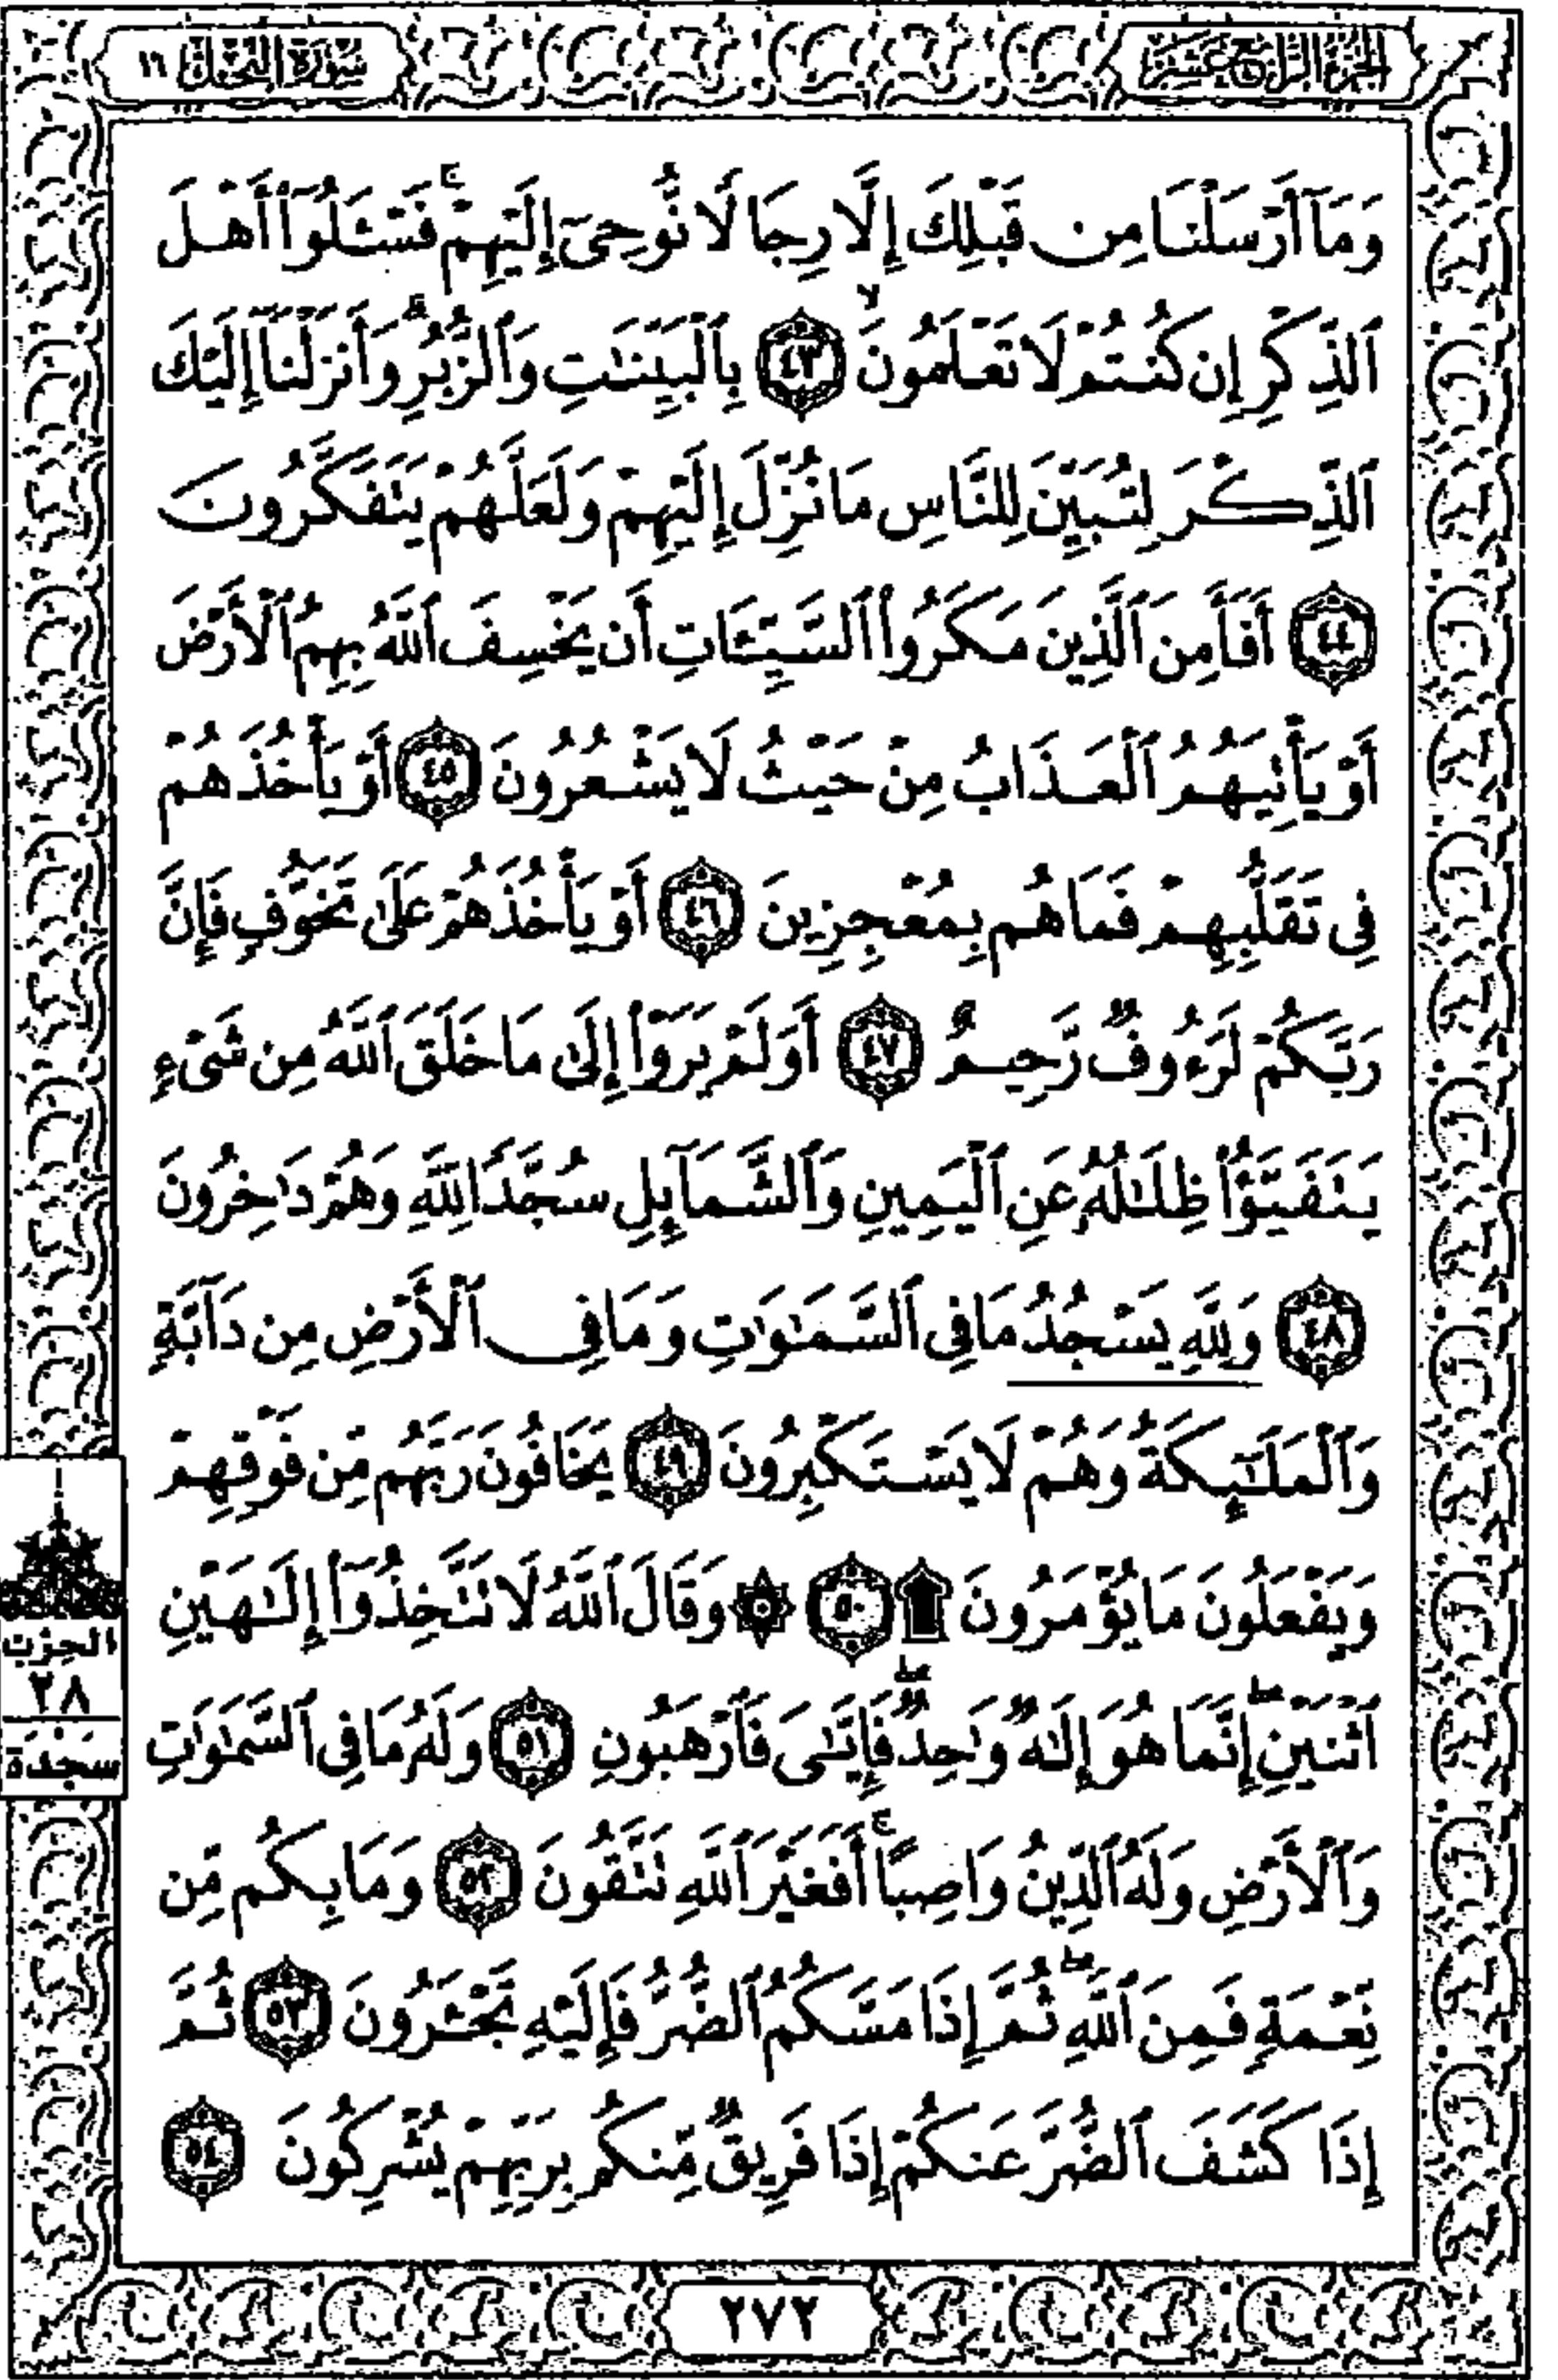 الجزء الرابع عشر
سورة النحل ١٦
وَمَآ أَرۡسَلۡنَا مِن قَبۡلِكَ إِلَّا رِجَالٗا نُّوحِيٓ إِلَيۡهِمۡۚ فَسۡـَٔلُوٓاْ أَهۡلَ
ٱلذِّكۡرِ إِن كُنتُمۡ لَا تَعۡلَمُونَۙ ٤٣ بِٱلۡبَيِّنَٰتِ وَٱلزُّبُرِۗ وَأَنزَلۡنَآ إِلَيۡكَ
ٱلذِّكۡرَ لِتُبَيِّنَ لِلنَّاسِ مَا نُزِّلَ إِلَيۡهِمۡ وَلَعَلَّهُمۡ يَتَفَكَّرُونَ
٤٤ أَفَأَمِنَ ٱلَّذِينَ مَكَرُواْ ٱلسَّيِّـَٔاتِ أَن يَخۡسِفَ ٱللَّهُ بِهِمُ ٱلۡأَرۡضَ
أَوۡ يَأۡتِيَهُمُ ٱلۡعَذَابُ مِنۡ حَيۡثُ لَا يَشۡعُرُونَ ٤٥ أَوۡ يَأۡخُذَهُمۡ
فِي تَقَلُّبِهِمۡ فَمَا هُم بِمُعۡجِزِينَ ٤٦ أَوۡ يَأۡخُذَهُمۡ عَلَىٰ تَخَوُّفٖ فَإِنَّ
رَبَّكُمۡ لَرَءُوفٞ رَّحِيمٌ ٤٧ أَوَلَمۡ يَرَوۡاْ إِلَىٰ مَا خَلَقَ ٱللَّهُ مِن شَيۡءٖ
يَتَفَيَّؤُاْ ظِلَٰلُهُۥ عَنِ ٱلۡيَمِينِ وَٱلشَّمَآئِلِ سُجَّدٗا لِّلَّهِ وَهُمۡ دَٰخِرُونَ
٤٨ وَلِلَّهِ يَسۡجُدُۤ مَا فِي ٱلسَّمَٰوَٰتِ وَمَا فِي ٱلۡأَرۡضِ مِن دَآبَّةٖ
وَٱلۡمَلَٰٓئِكَةُ وَهُمۡ لَا يَسۡتَكۡبِرُونَ ٤٩ يَخَافُونَ رَبَّهُم مِّن فَوۡقِهِمۡ
وَيَفۡعَلُونَ مَا يُؤۡمَرُونَ ۩ ٥٠ ۞ وَقَالَ ٱللَّهُ لَا تَتَّخِذُوٓاْ إِلَٰهَيۡنِ
ٱثۡنَيۡنِۖ إِنَّمَا هُوَ إِلَٰهٞ وَٰحِدٞۖ فَإِيَّٰيَ فَٱرۡهَبُونِ ٥١ وَلَهُۥ مَا فِي ٱلسَّمَٰوَٰتِ
وَٱلۡأَرۡضِ وَلَهُ ٱلدِّينُ وَاصِبًاۚ أَفَغَيۡرَ ٱللَّهِ تَتَّقُونَ ٥٢ وَمَا بِكُم مِّن
نِّعۡمَةٖ فَمِنَ ٱللَّهِۖ ثُمَّ إِذَا مَسَّكُمُ ٱلضُّرُّ فَإِلَيۡهِ تَجۡـَٔرُونَ ٥٣ ثُمَّ
إِذَا كَشَفَ ٱلضُّرَّ عَنكُمۡ إِذَا فَرِيقٞ مِّنكُم بِرَبِّهِمۡ يُشۡرِكُونَ ٥٤
الحزب
٢٨
سجدة
٢٧٢